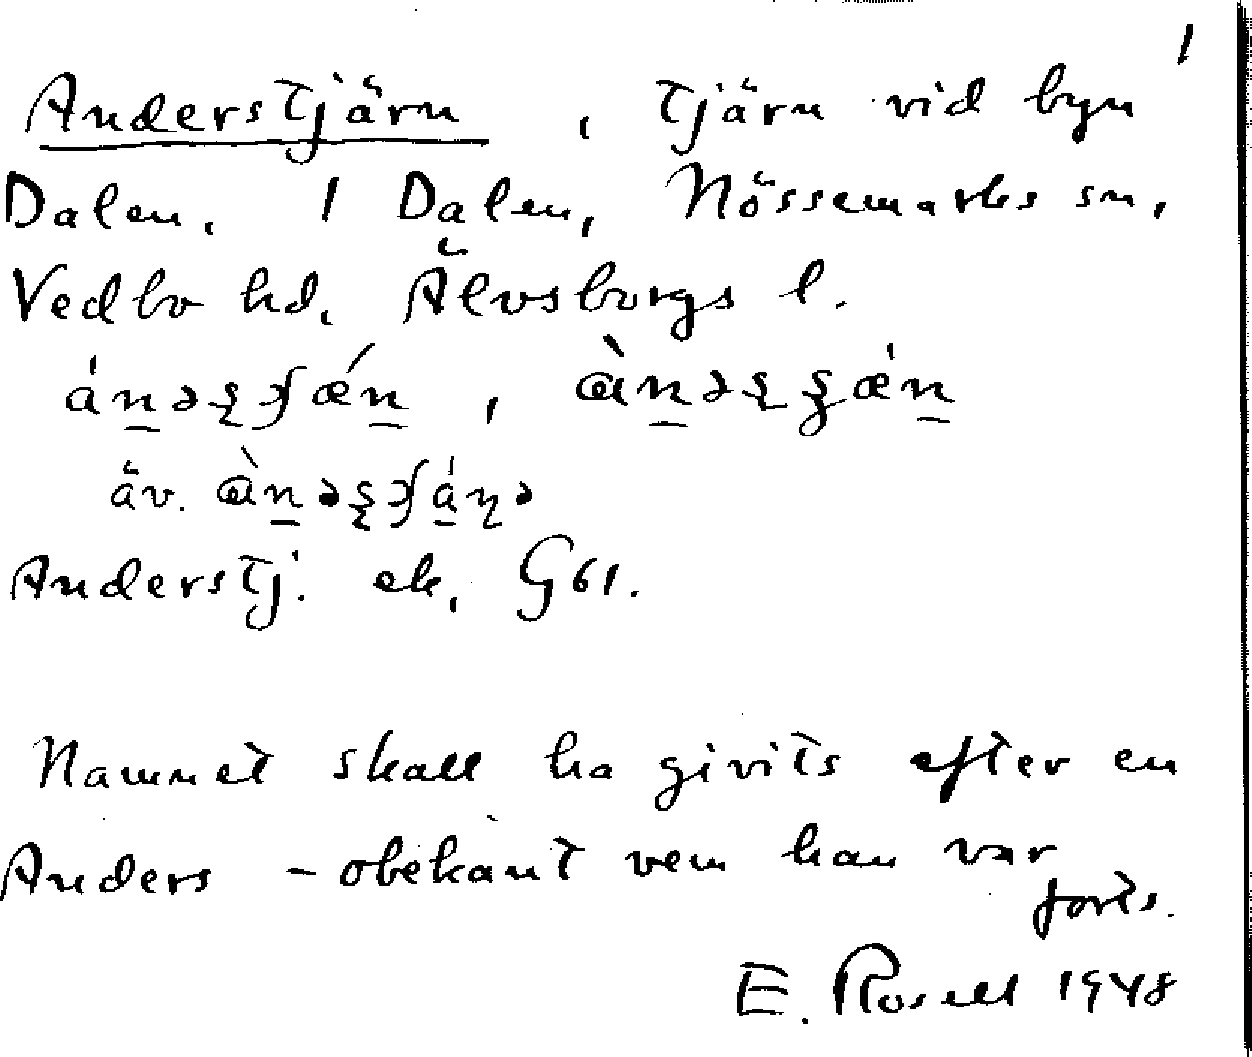 1
Anderstjärn, tjärn vid byn
Dalen. 1 Dalen, Nössemarks sn,
Vedbo hd, Älvsborgs l.
äv.
Anderstj. ek, G61.
Namnet skall ha givits efter en
Anders – obekant vem han var
forts.
E. Rosell 1948